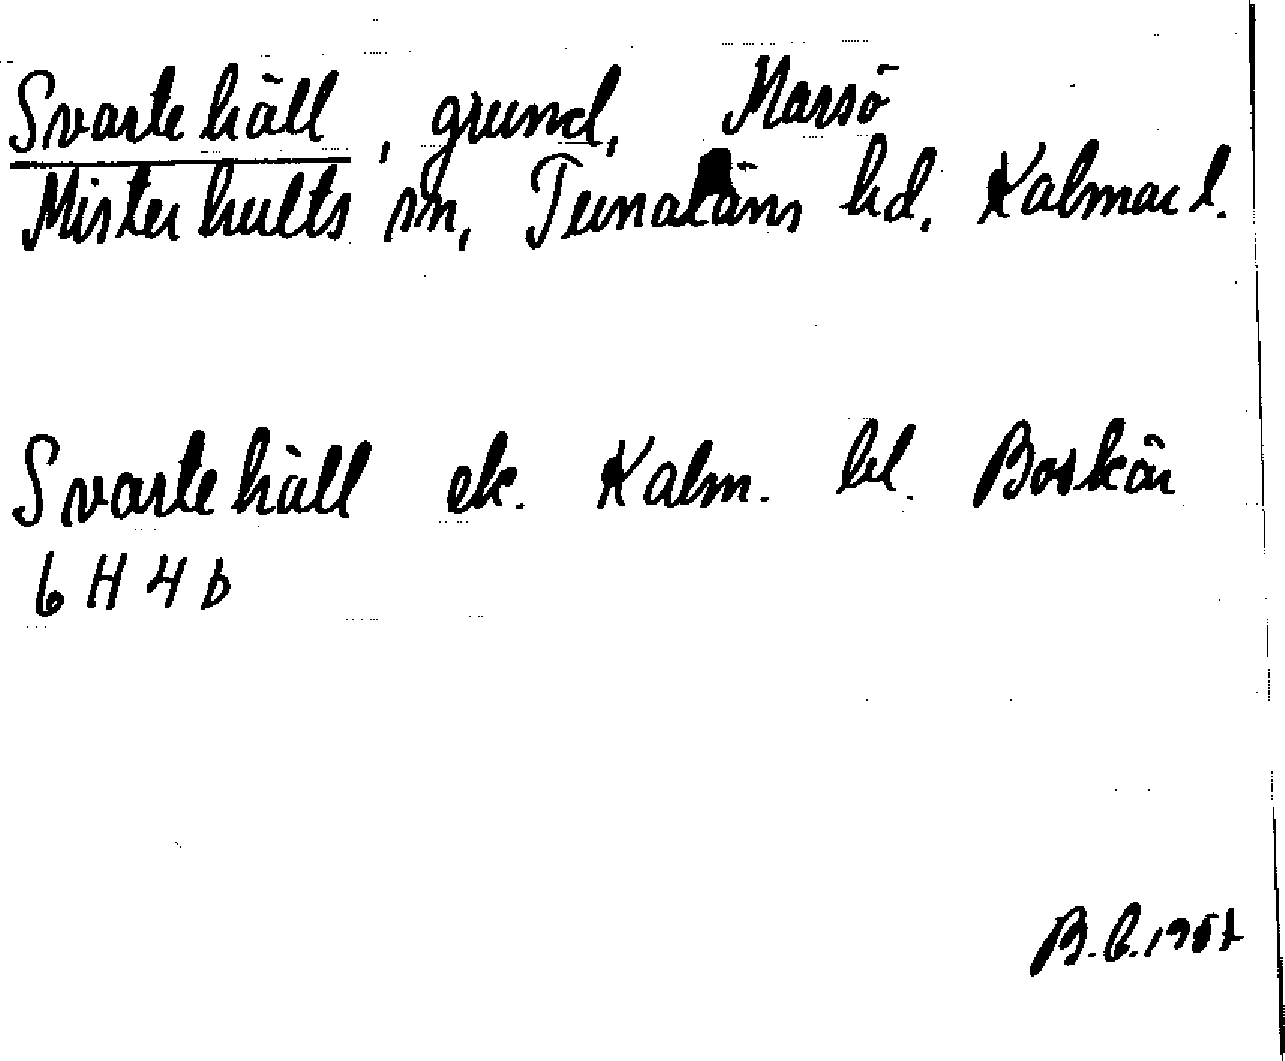 Svartehäll, grund, Marsö
Misterhults sn, Tunaläns hd. Kalmar l.
Svartehäll ek. Kalm. bl. Boskär
6 H 4 b